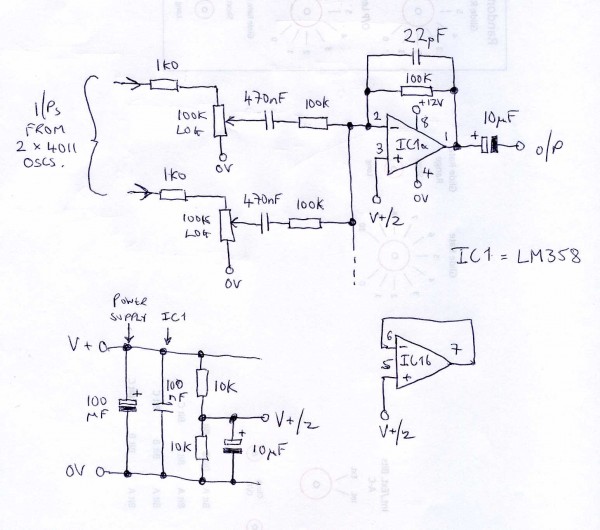 22pF
1k0
100K
+12V
I/Ps
FROM
2 x 4011
OSCS.
100K
LOG
470nF
100k
0V
2
3
8
1
4
-
+
IC1a
0V
V+/2
10µF
+
O/P
1k0
100K
LOG
470nF
100K
0V
IC1 = LM358
POWER
SUPPLY
IC1
V+
100
µF
+
100
nF
10K
10K
V+/2
+
10µF
0V
6
5
7
-
+
IC1b
V+/2